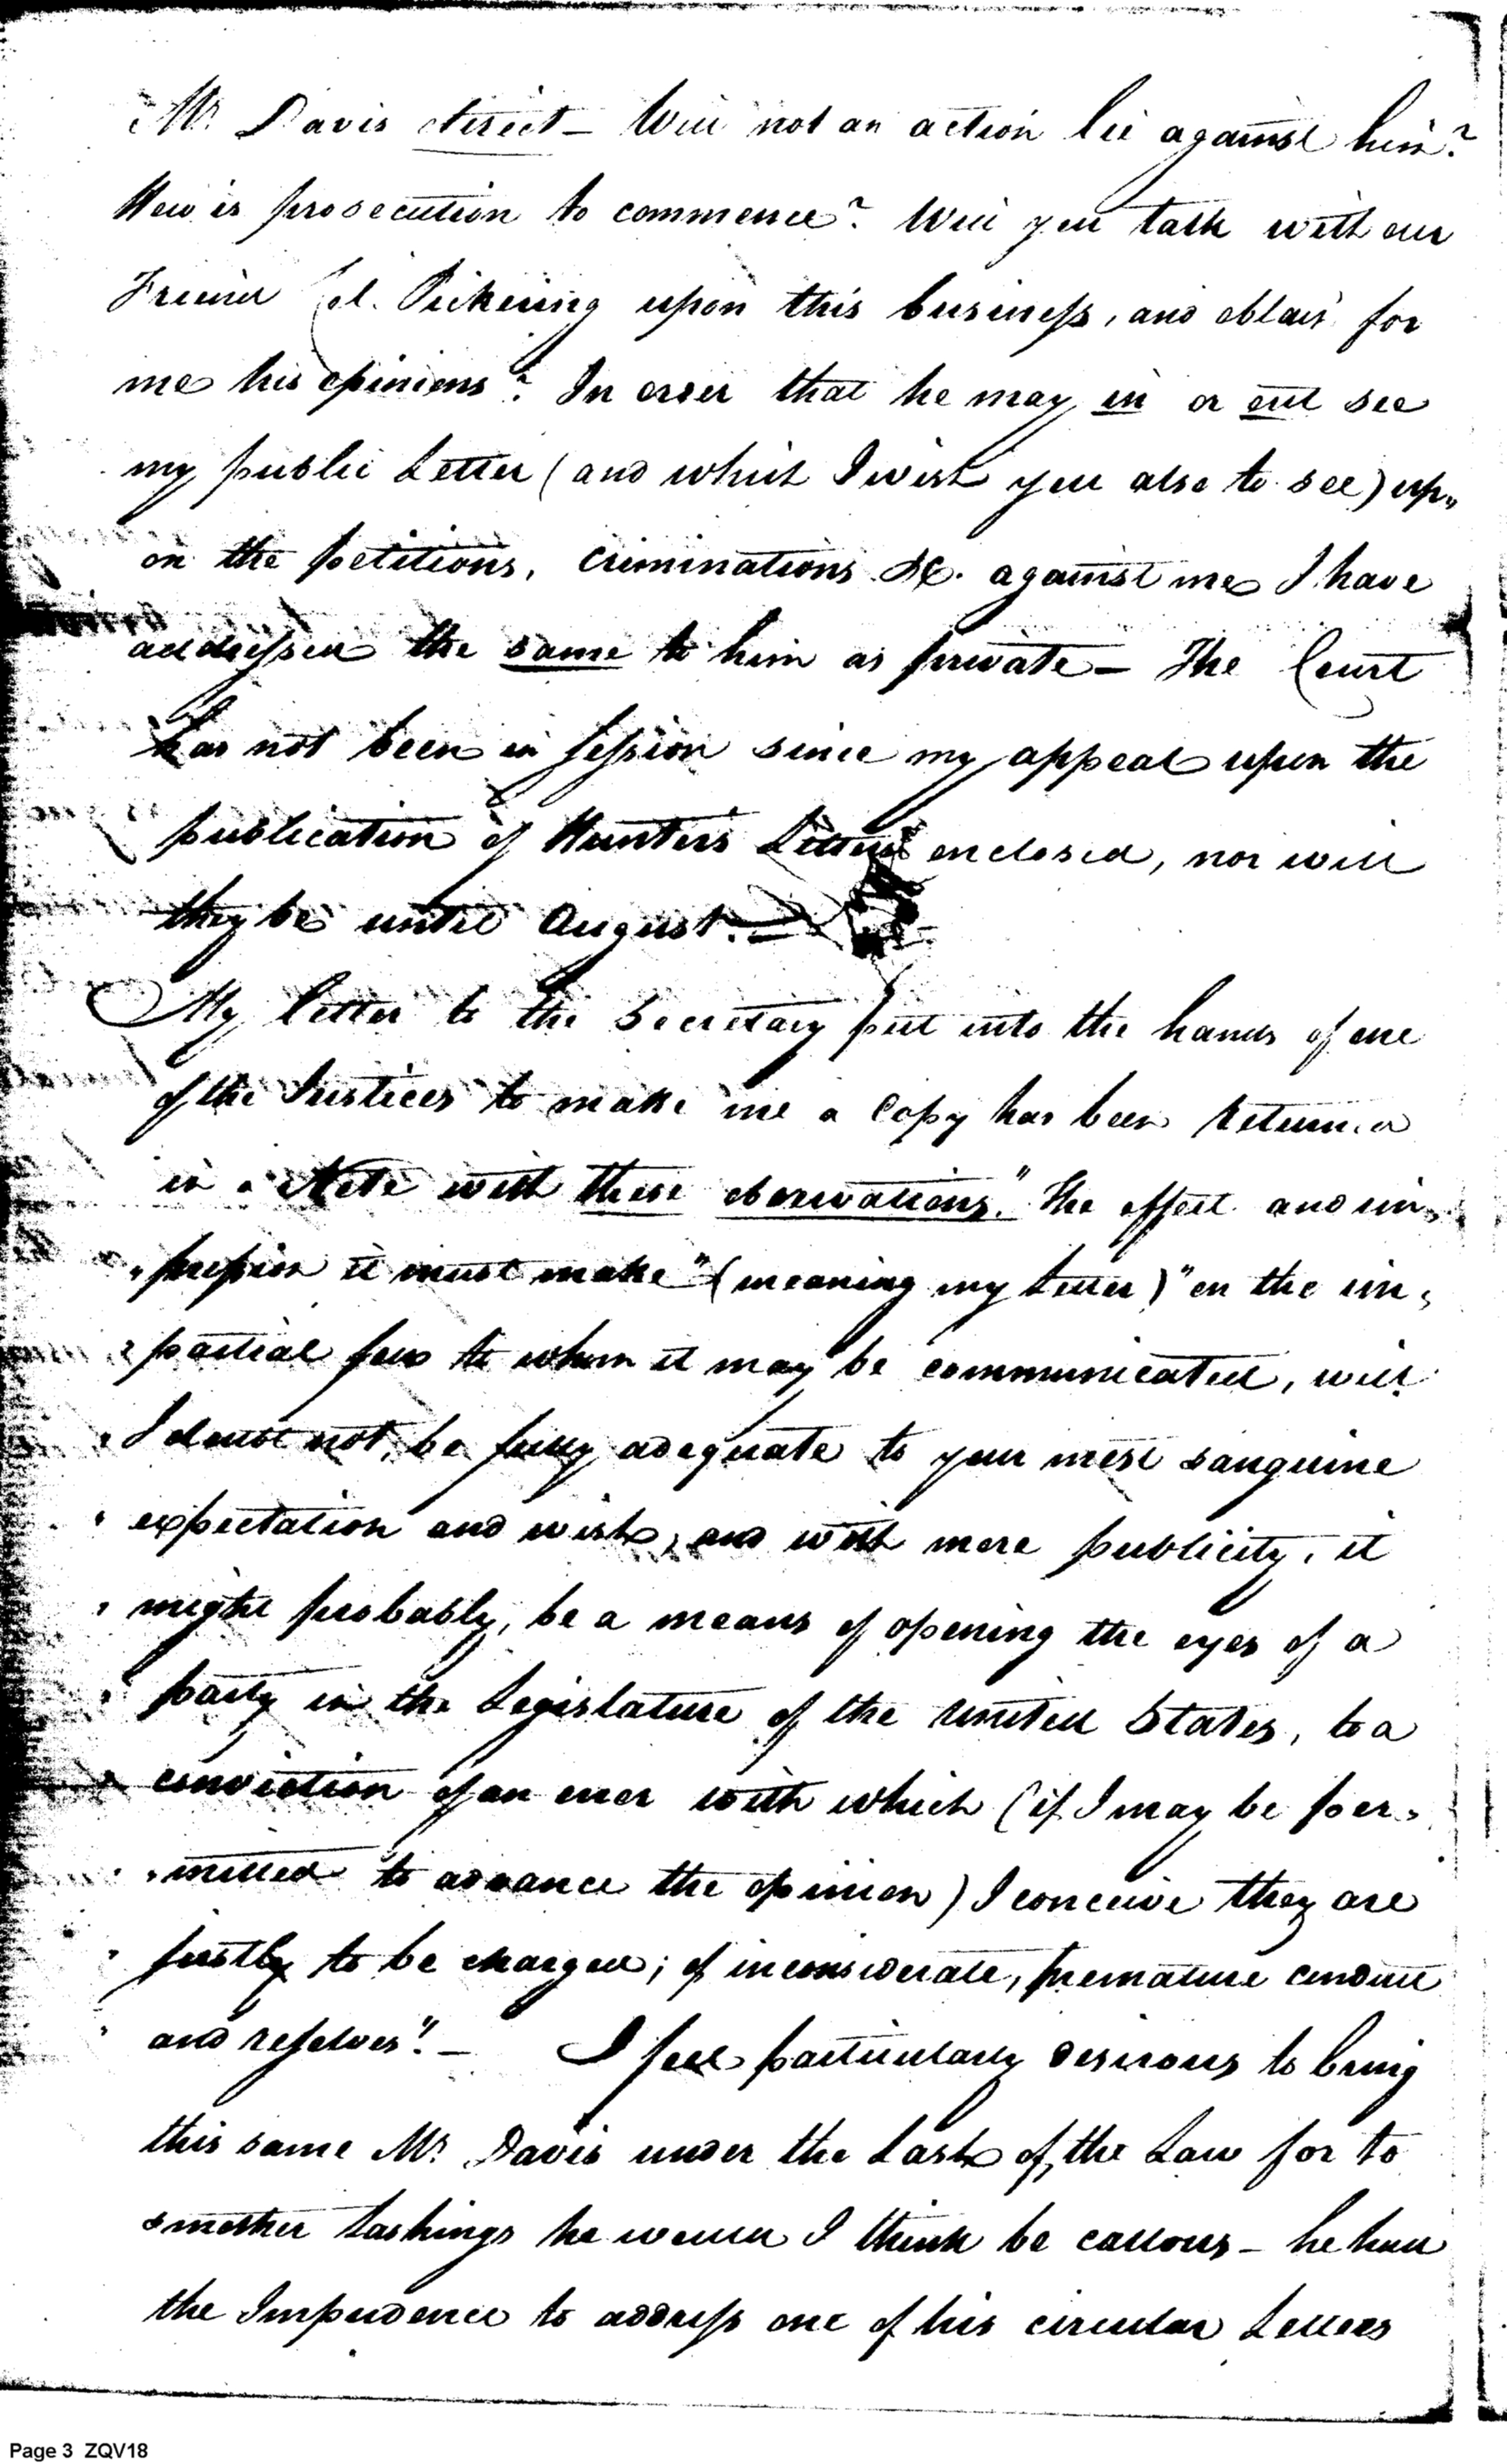 Mr. Davis strict – Will not an action lie against him?
How is prosecution to commence? Will you talk with our
Friend Col. Pickering upon this business, and obtain for
me his opinions? In order that he may in or out see
my public Letter (and which I wish you also to see) up„
on the petitions, criminations &c. against me I have
addressed the same to him as private – The Court
has not been in session since my appeal upon the
publication of Hunter's Letter enclosed, nor will
they be until August. –
My letter to the Secretary put into the hands of one
of the Justices to make me a Copy has been returned
in a Note with these observations. "The effect and im„
„pression it must make" (meaning my Letter) "on the im„
„partial few to whom it may be communicated, will
„ I doubt not, be fully adequate to your most sanguine
„ expectation and wish, and with more publicity, it
„ might probably, be a means of opening the eyes of a
„ party in the Legislature of the United States, to a
conviction of an error with which (if I may be per„
„mitted to advance the opinion) I conceive they are
„ justly to be charged; of inconsiderate, premature conduct
„ and resolves". – I feel particularly desirous to bring
this same Mr. Davis under the Lash of, the Law for to
smother lashings he would I think be callous – he had
the Impudence to address one of his circular Letters
Page 3 ZQV18